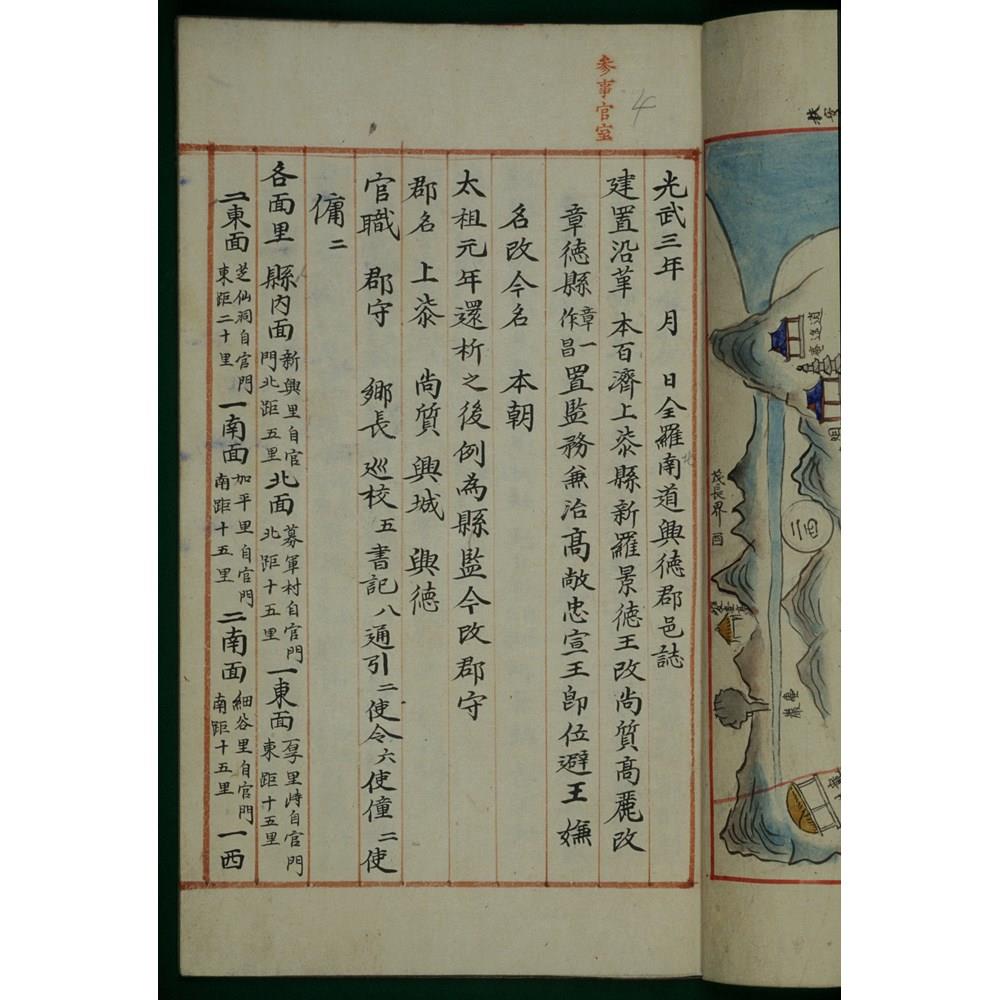 参事官室
4
光武三年 月 日全羅南道興德郡邑誌
北
建置沿革 本百濟上柒縣新羅景德王改尚質高麗改
章德縣章一作昌置監務兼治高敞忠宣王卽位避王嫌
名改今名 本朝
太祖元年還析之後例為縣監今改郡守
郡名 上柒 尚質 興城 興德
官職 郡守 鄉長 巡校五書記八通引二使令六使僮二使
傭二
各面里 縣內面新興里自官門北距五里北面募軍村自官門北距十五里一東面厚里峙自官門東距十五里
二東面芝仙祠自官門東距二十里一南面加平里自官門南距十五里二南面細谷里自官門南距十五里一西
扶安
逍遙庵
茂長界
酉
二西